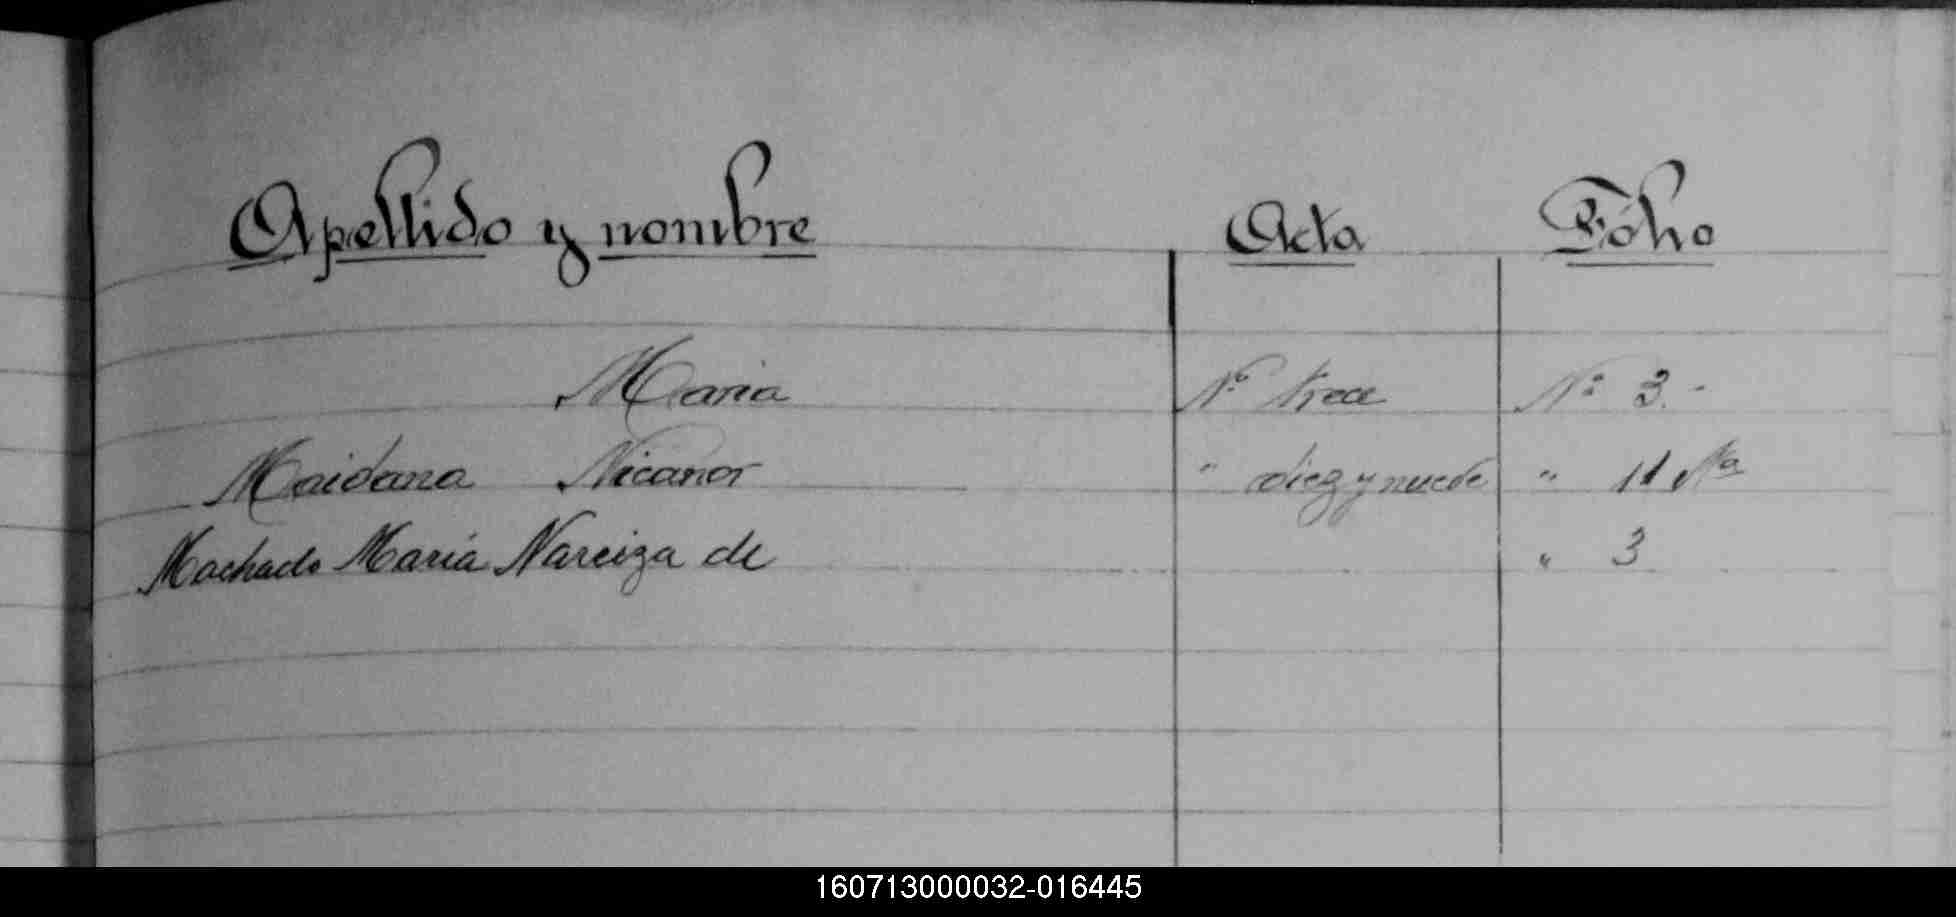 Apellido y nombre Acta Fólio
Maria Nº trece Nº 3.-
Maidana Nicanor " diez y nueve " 11
Machado María Narciza de " 3
160713000032-016445